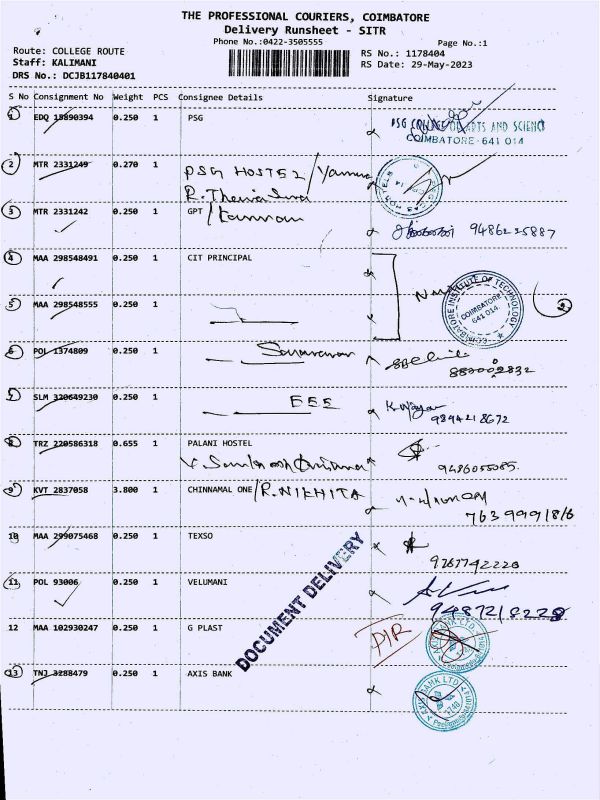 THE PROFESSIONAL COURIERS, COIMBATORE
Delivery Runsheet - SITR
Phone No.:0422-3505555
Page No.:1
Route: COLLEGE ROUTE
Staff: KALIMANI
DRS No.: DCJB117840401
RS No.: 1178404
RS Date: 29-May-2023
S No Consignment No Weight PCS Consignee Details Signature
1 EDQ 15890394 0.250 1 PSG
PSG COLLEGE OF ARTS AND SCIENCE
COIMBATORE - 641 014
2 MTR 2331249 0.270 1 PSG HOSTEL /
3 MTR 2331242 0.250 1 GPT / Kannan
9486225887
4 MAA 298548491 0.250 1 CIT PRINCIPAL
COIMBATORE INSTITUTE OF TECHNOLOGY
COIMBATORE
641 014
5 MAA 298548555 0.250 1
6 POL 1374809 0.250 1 Saravanan
7 SLM 320649230 0.250 1 EEE
9894218672
8 TRZ 220586318 0.655 1 PALANI HOSTEL
9486055085
9 KVT 2837058 3.800 1 CHINNAMAL ONE / R. NIKHITA
7639991816
10 MAA 299075468 0.250 1 TEXSO
DOCUMENT DELIVERY
11 POL 93006 0.250 1 VELUMANI
12 MAA 102930247 0.250 1 G PLAST
13 TNJ 3288479 0.250 1 AXIS BANK
AXIS BANK LTD